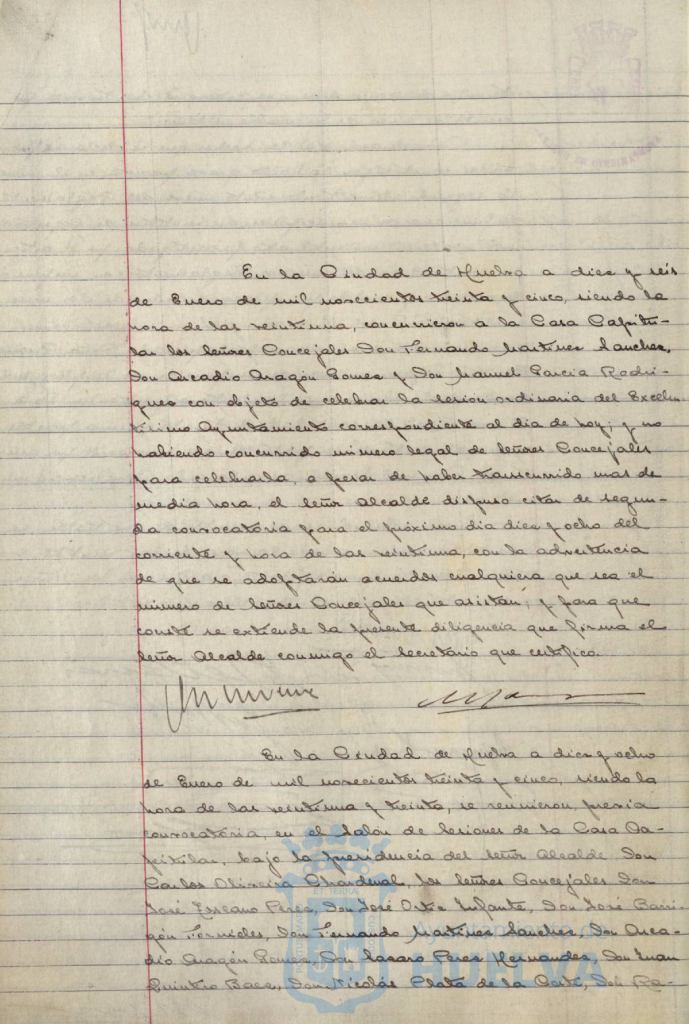 En la Ciudad de Huelva a diez y seis
de Enero de mil novecientos treinta y cinco, siendo la
hora de las veintiuna, concurrieron a la Casa Capitu-
lar los Señores Concejales Don Fernando Martinez Sanchez,
Don Arcadio Aragón Gomez y Don Manuel Garcia Rodri-
guez con objeto de celebrar la sesion ordinaria del Excelen-
tisimo Ayuntamiento correspondiente al dia de hoy; y no
habiendo concurrido número legal de Señores Concejales
para celebrarla, a pesar de haber transcurrido mas de
media hora, el Señor Alcalde dispuso citar de segun-
da convocatoria para el próximo dia diez y ocho del
corriente y hora de las veintiuna, con la advertencia
de que se adoptarán acuerdos cualquiera que sea el
número de Señores Concejales que asistan; y para que
conste se extiende la presente diligencia que firma el
Señor Alcalde conmigo el Secretario que certifico.
En la Ciudad de Huelva a diez y ocho
de Enero de mil novecientos treinta y cinco, siendo la
hora de las veintiuna y treinta, se reunieron, previa
convocatoria, en el Salón de Sesiones de la Casa Ca-
pitular, bajo la presidencia del Señor Alcalde Don
Carlos Oliveira Chardenal, los Señores Concejales Don
José Lescano Perez, Don José Ortiz Infante, Don José Barri-
gón Fornieles, Don Fernando Martinez Sanchez, Don Arca-
dio Aragón Gomez, Don Lazaro Perez Hernandez, Don Juan
Quintero Baez, Don Nicolás Plata de la Corte, Don Ra-
HUELVA